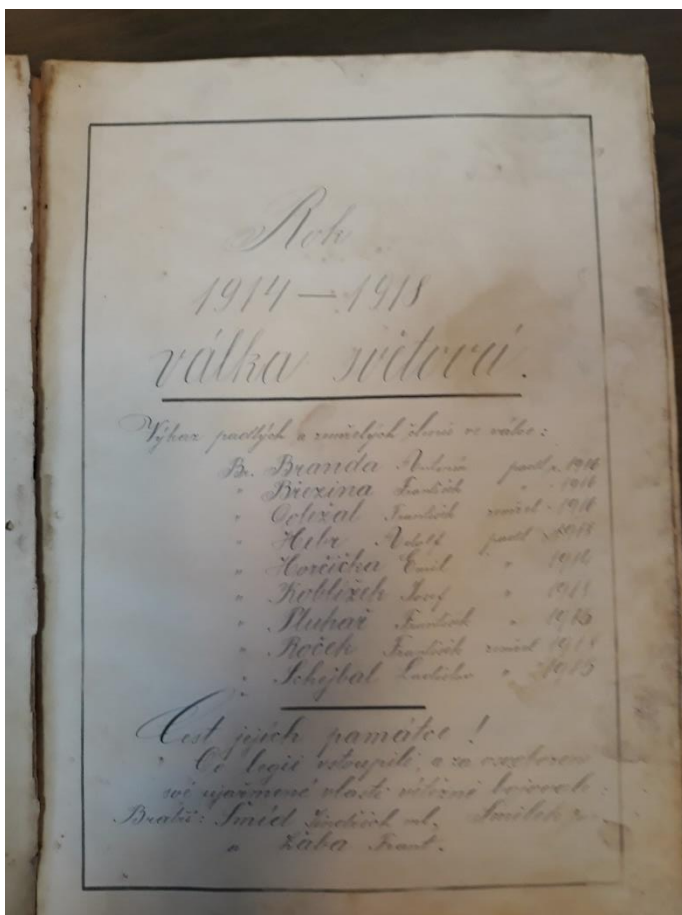 Rok
1914 — 1918
válka světová.
Výkaz padlých a zemřelých členů ve válce:
Br. Branda Antonín padl r. 1916
" Březina František " 1916
" Doležal František zemřel 1916
" Hebr Adolf padl 1918
" Horčička Emil " 1916
" Koblížek Josef "
" Pluhař František " 1916
" Roček František zemřel 1918
" Schejbal Ladislav " 1915
Čest jejich památce!
Do legií vstoupili a za osvobození
své ujařmené vlasti vítězně bojovali:
Bratři: Šmíd Jindřich ml.
" Žába Frant.